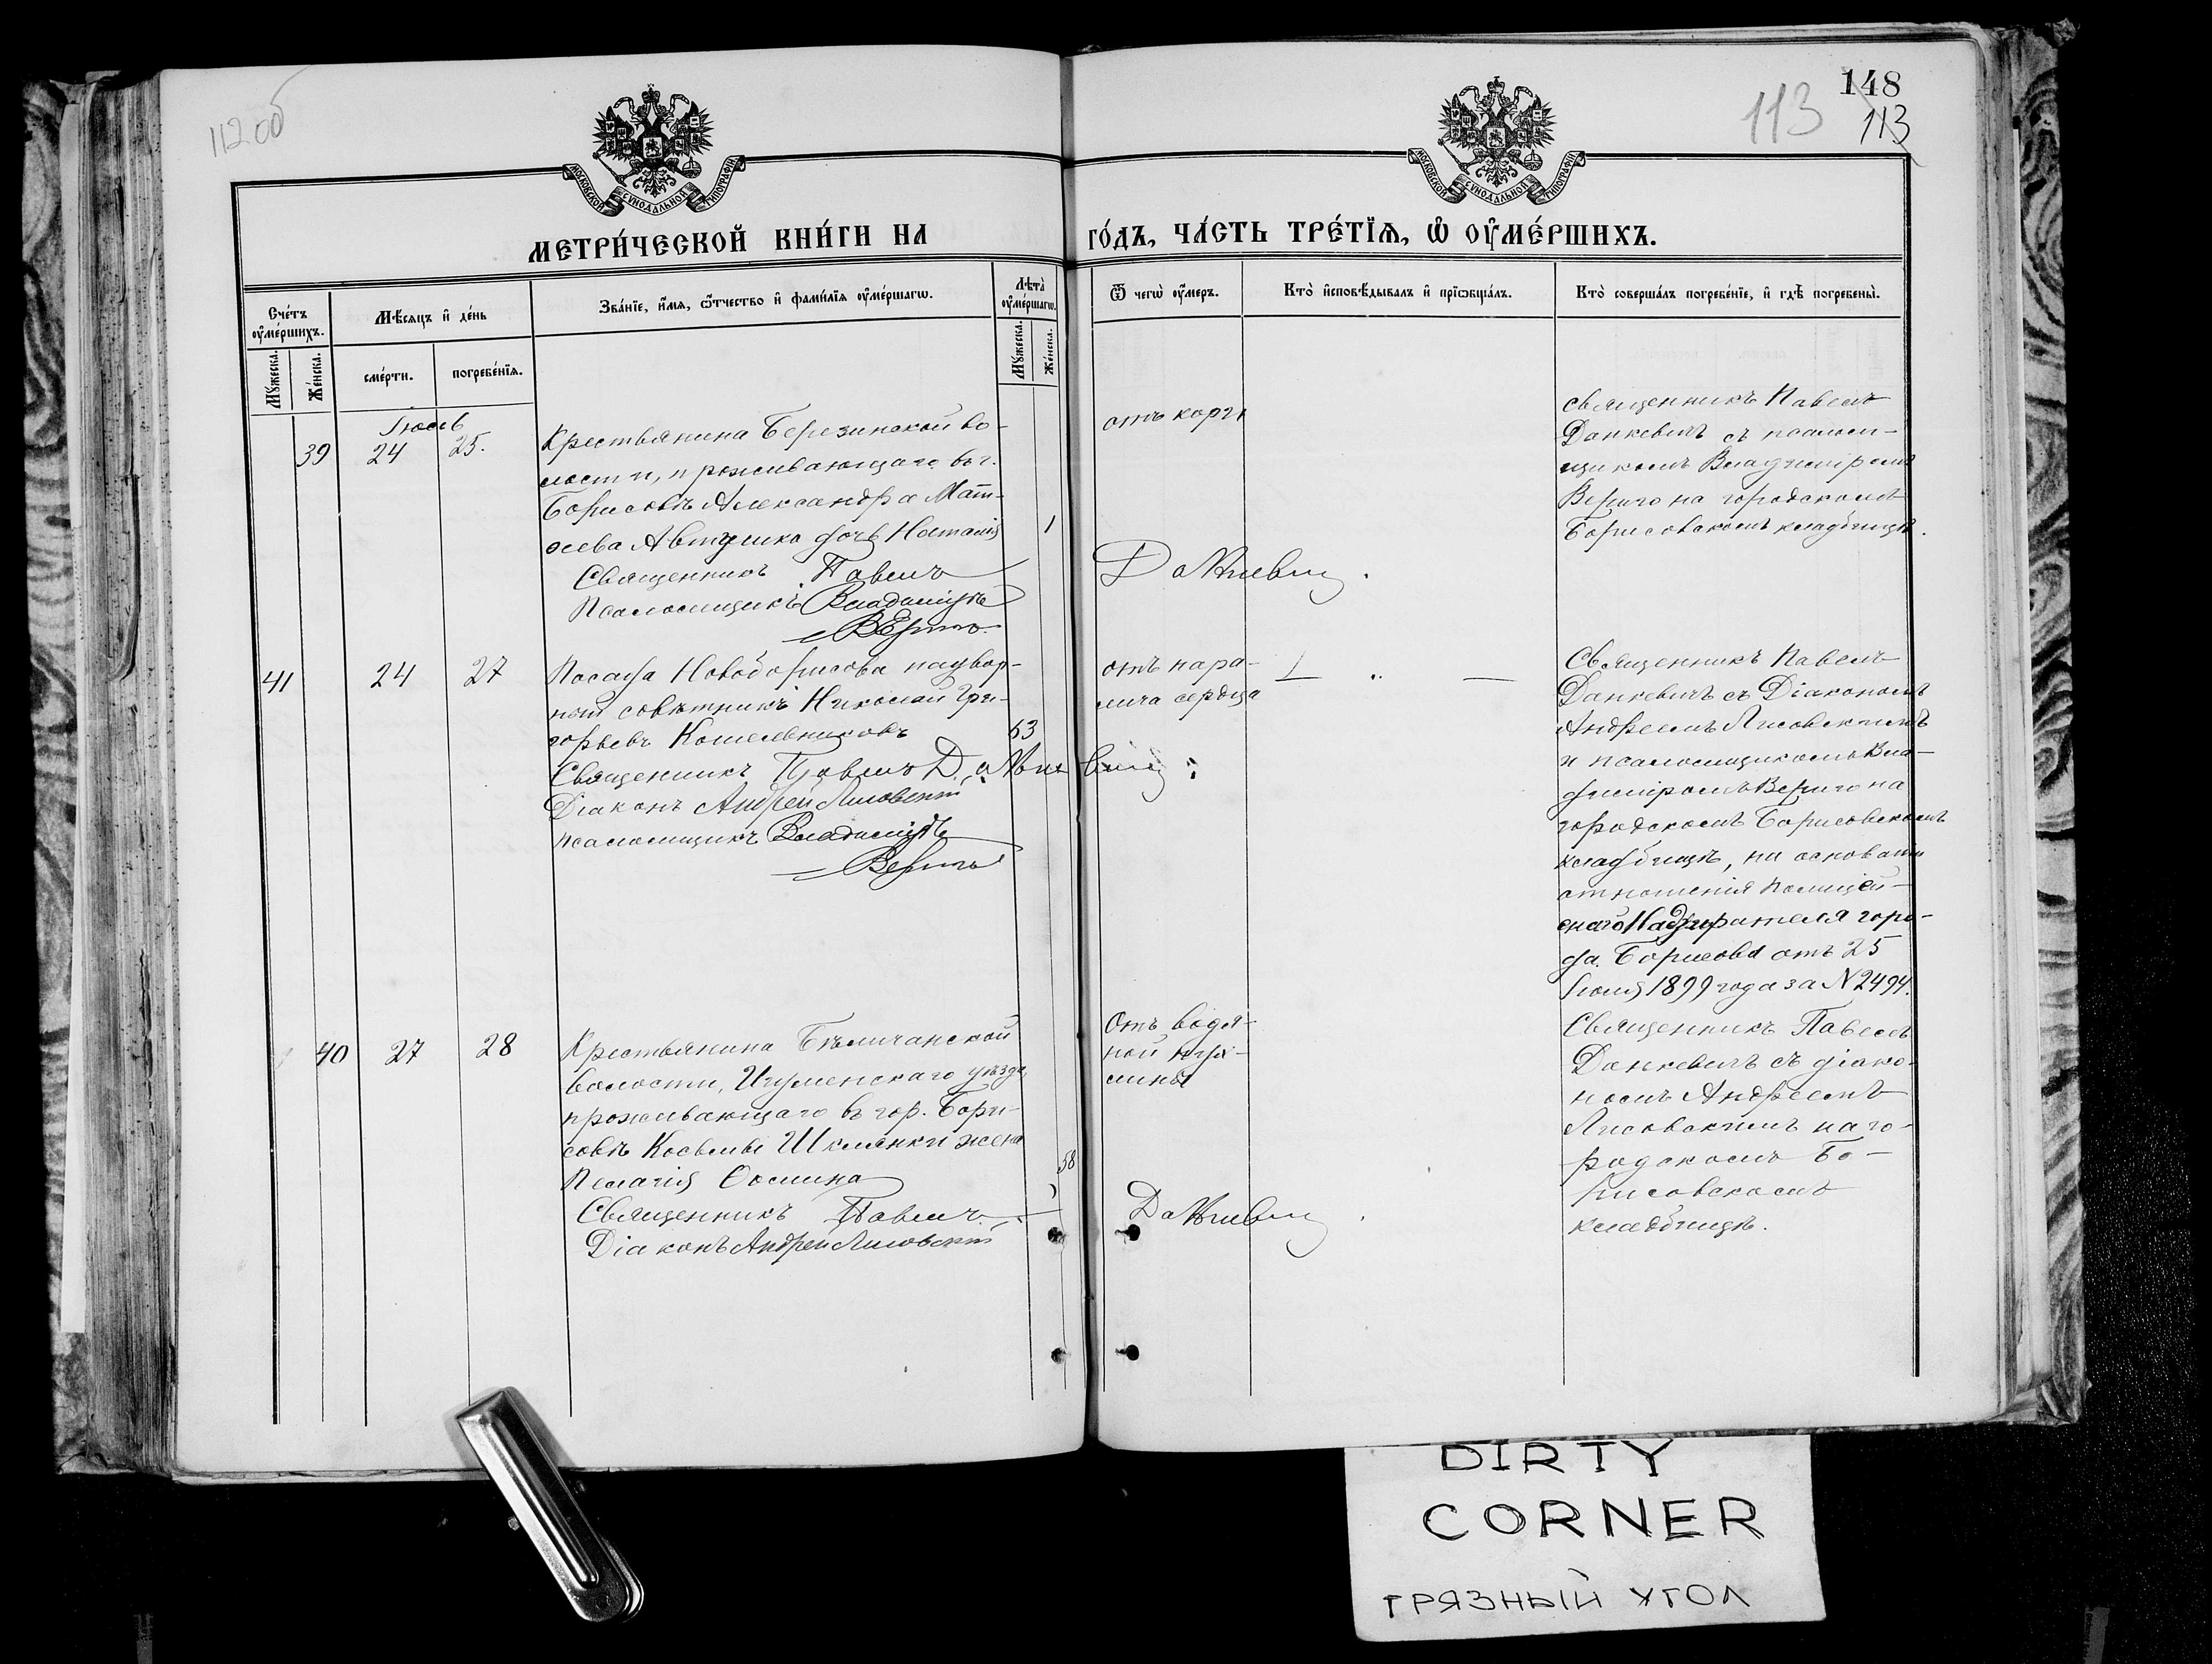 112 об
148
113
113
МОСКОВСКОЙ СѴНОДАЛЬНОЙ ТИПОГРАФІИ
МОСКОВСКОЙ СѴНОДАЛЬНОЙ ТИПОГРАФІИ
МЕТРИ́ЧЕСКОЙ КНИ́ГИ НА
ГО́ДЪ, ЧА́СТЬ ТРЕ́ТЇѦ, Ѽ ОУ҆МЕ́РШИХЪ.
Сче́тъ оу҆ме́ршихъ.
Мꙋ́жеска.
Же́нска.
Мѣ́сяцъ и҆ де́нь
сме́рти.
погребе́нїѧ.
Зва́нїе, и҆́мѧ, ѻ҆́тчество и҆ фами́лїѧ оу҆ме́ршагѡ.
Лѣ́та оу҆ме́ршагѡ.
Мꙋ́жеска.
Же́нска.
Ѿ чегѡ̀ оу҆́меръ.
Кто̀ и҆сповѣ́дывалъ и҆ прїѡбща́лъ.
Кто̀ соверша́лъ погребе́нїе, и҆ гдѣ̀ погребены̀.
Іюль
39
24
25.
Крестьянина Березинской во-
лости, проживающаго въ г.
Борисовѣ Александра Мат-
ѳеева Автушко дочь Наталія
1
Священникъ Павелъ Данкевич.
Псаломщикъ Владиміръ
Верыго
отъ кори
Священникъ Павелъ
Данкевичъ съ псалом-
щикомъ Владиміромъ
Верыго на городскомъ
Борисовскомъ кладбищѣ.
41
24
27
Посада Новоборисова надвор-
ный совѣтникъ Николай Гри-
горьевъ Кошелевниковъ
63
Священникъ Павелъ Данкевич
Діаконъ Андрей Лисовскій
псаломщикъ Владиміръ
Верыго
отъ пара-
лича сердца
Священникъ Павелъ
Данкевичъ съ Діакономъ
Андреемъ Лисовскимъ
и псаломщикомъ Вла-
диміромъ Верыго на
городскомъ Борисовскомъ
кладбищѣ, на основаніи
отношенія Полицей-
скаго Надзирателя горо-
да Борисова отъ 25
Іюля 1899 года за № 2494.
40
27
28
Крестьянина Бѣличанской
волости, Игуменскаго уѣзда
проживающаго въ гор. Бори-
совѣ Косьмы Шклянки жена
Пелагія Ѳомина
58
Священникъ Павелъ Данкевич
Діаконъ Андрей Лисовскій
Отъ водя-
ной
Священникъ Павелъ
Данкевичъ съ діако-
номъ Андреемъ
Лисовскимъ на го-
родскомъ Бо-
рисовскомъ
кладбищѣ.
DIRTY
CORNER
ГРЯЗНЫЙ УГОЛ